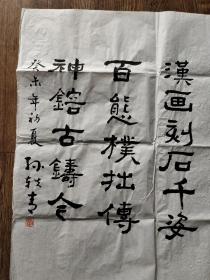 漢画刻石千姿
百態樸拙傳
神鎔古鑄今
癸未年初夏
孫軼青